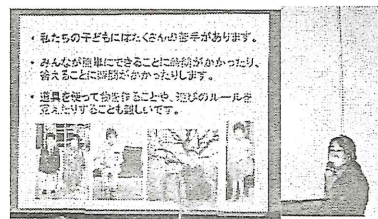 ・私たちの子どもにはたくさんの苦手があります。
・みんなが簡単にできることに時間がかかったり、
答えることに時間がかかったりします。
・道具を使って物を作ることや、遊びのルールを
覚えたりすることも難しいです。